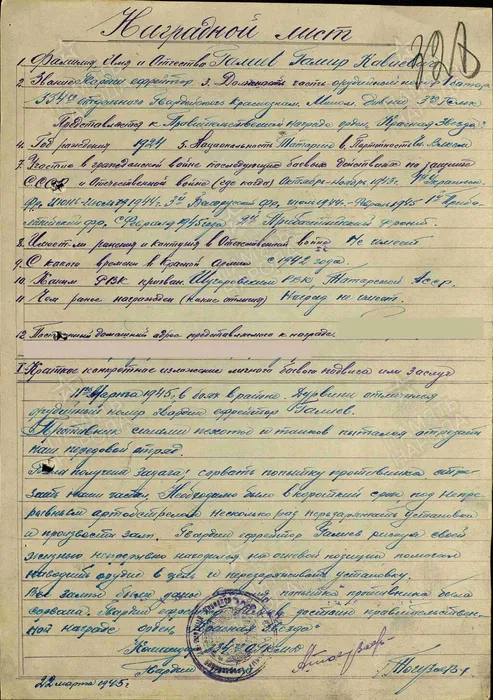 Наградной лист
1. Фамилия Имя и Отчество Галиев
2. Звание Гвардии ефрейтор 3. Должность часть орудийный номер
334го отдельного Гвардейского Краснознам. Мином. Дивиз.
Представляется к Правительственной награде орден „Красная Звезда"
4. Год рождения 1924 5. Национальность Татарин 6. Партийность
7. Участие в гражданской войне последующих боевых действиях по защите
СССР и Отечественной войне (где когда) Октябрь-Ноябрь 1943г.
фр. Июнь-Июль 1944г. Белорусский фр. июль 1944 - Февраль 1945 1й Прибал-
тийский фр. с Февраля 1945 года Прибалтийский фронт.
8. Имеет ли ранения и контузии в Отечественной войне Не имеет
9. С какого времени в Красной Армии с 1942 года
10. Каким РВК призван РВК, Татарской АССР.
11. Чем ранее награжден (какие отличия) Наград не имеет.
12. Постоянный домашний адрес представляемого к награде
I. Краткое конкретное изложение личного боевого подвига или заслуг
11го Марта 1945г. в боях в районе отличился
орудийный номер гвардии ефрейтор Галиев.
Противник силами пехоты и танков пытался отрезать
наш передовой отряд.
Была получена задача: сорвать попытку противника отре-
зать наши части. Необходимо было в короткий срок под непре-
рывным артобстрелом несколько раз перезаряжать установки
и произвести залп. Гвардии ефрейтор Галиев рискуя своей
жизнью непрерывно находился на огневой позиции помогал
наводить орудие в цель и перезаряживать установку.
Все залпы были даны попытка противника была
сорвана. Гвардии достоин правительствен-
ной награде орден „Красная Звезда"
Командир
Гвардии
22 марта 1945г.